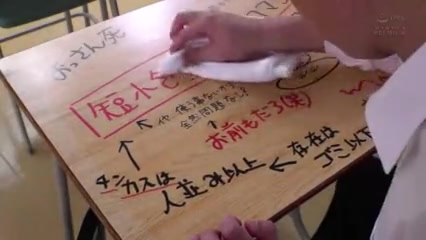 おっさん死
短小包
他に使う事ないから
全然問題なし?
お前もだろ(笑)
チンカスは
人並み以上
存在は
ゴミ以下